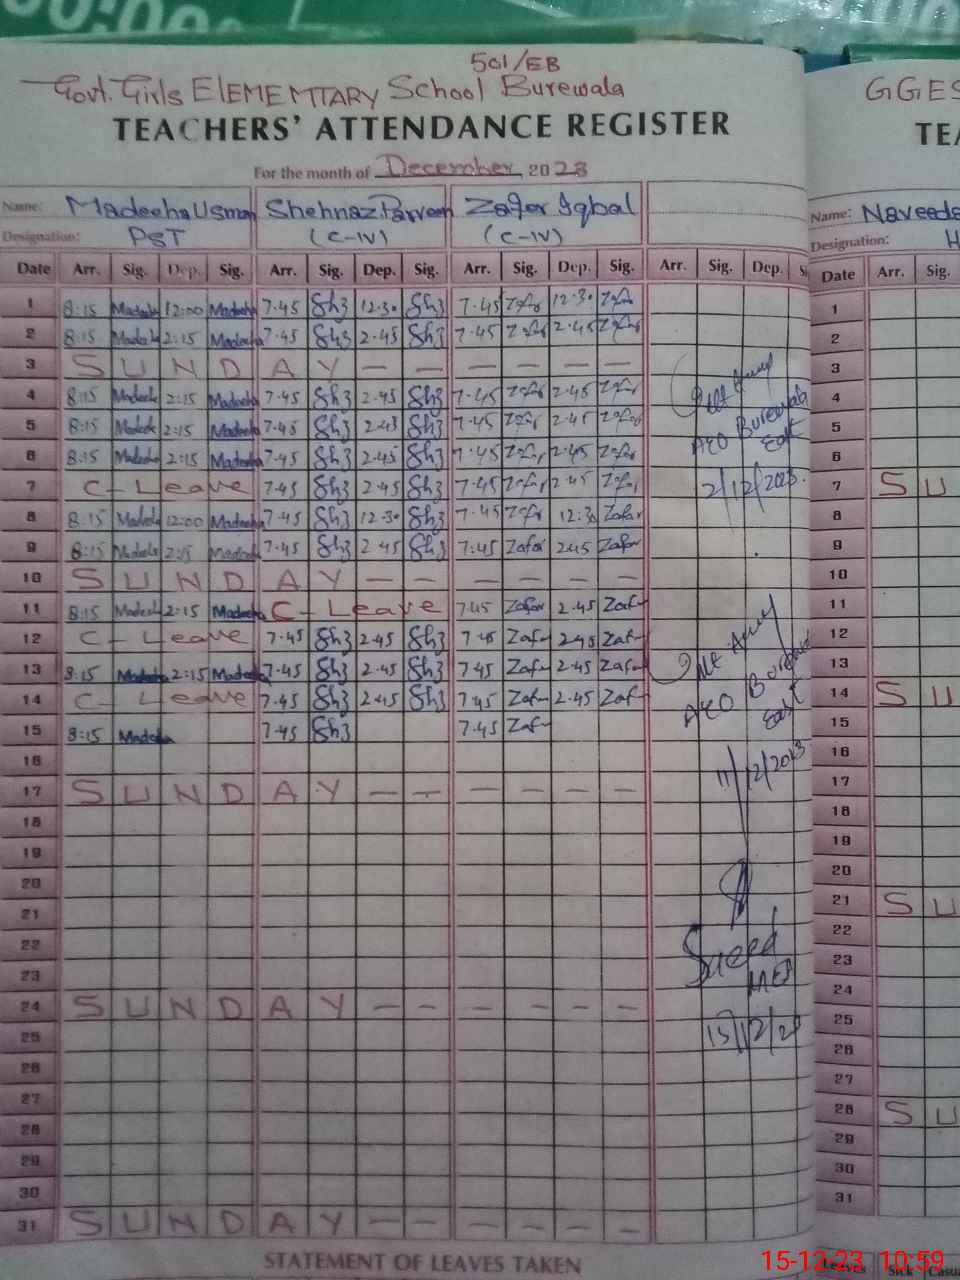 :00:00
501/EB
Govt. Girls ELEMEMTARY School Burewala
TEACHERS' ATTENDANCE REGISTER
For the month of December 2023
Name: Madeeha Usman Shehnaz Parveen Zafar Iqbal
Designation: PST (C-IV) (C-IV)
Date Arr. Sig. Dep. Sig. Arr. Sig. Dep. Sig. Arr. Sig. Dep. Sig. Arr. Sig. Dep. Si
1 8:15 Madeeha 12:00 Madeeha 7.45 Sh3 12.30 Sh3 7.45 Zafar 12.30 Zafar
2 8:15 Madeeha 2:15 Madeeha 7.45 Sh3 2.45 Sh3 7.45 Zafar 2.45 Zafar
3 S U N D A Y — — — — — —
4 8:15 Madeeha 2:15 Madeeha 7.45 Sh3 2.45 Sh3 7.45 Zafar 2.45 Zafar
5 8:15 Madeeha 2:15 Madeeha 7.45 Sh3 2.43 Sh3 7.45 Zafar 2.45 Zafar
6 8:15 Madeeha 2:15 Madeeha 7.45 Sh3 2.45 Sh3 7.45 Zafar 2.45 Zafar
7 C - Leave 7.45 Sh3 2.45 Sh3 7.45 Zafar 2.45 Zafar
8 8:15 Madeeha 12:00 Madeeha 7.45 Sh3 12.30 Sh3 7.45 Zafar 12.3 Zafar
9 8:15 Madeeha 2:15 Madeeha 7.45 Sh3 2.45 Sh3 7.45 Zafar 2.45 Zafar
10 S U N D A Y — — — — — —
11 8:15 Madeeha 2:15 Madeeha C - Leave 7.45 Zafar 2.45 Zafar
12 C - Leave 7.45 Sh3 2.45 Sh3 7.45 Zafar 2.45 Zafar
13 8:15 Madeeha 2:15 Madeeha 7.45 Sh3 2.45 Sh3 7.45 Zafar 2.45 Zafar
14 C - Leave 7.45 Sh3 2.45 Sh3 7.45 Zafar 2.45 Zafar
15 8:15 Madeeha 7.45 Sh3 7.45 Zafar
16
17 S U N D A Y — — — — — —
18
19
20
21
22
23
24 S U N D A Y — — — — — —
25
26
27
28
29
30
31 S U N D A Y — — — — — —
AEO Burewala
East
2/12/2023.
AEO Burewala
East
11/12/2023
Saeed
MEA
15/12/23
STATEMENT OF LEAVES TAKEN
GGES
TEA
Name: Naveeda
Designation: H
Date Arr. Sig.
1
2
3
4
5
6
7 S U
8
9
10
11
12
13
14 S U
15
16
17
18
19
20
21 S U
22
23
24
25
26
27
28 S U
29
30
31
Leaves Sick Casua
15-12-23 10:59